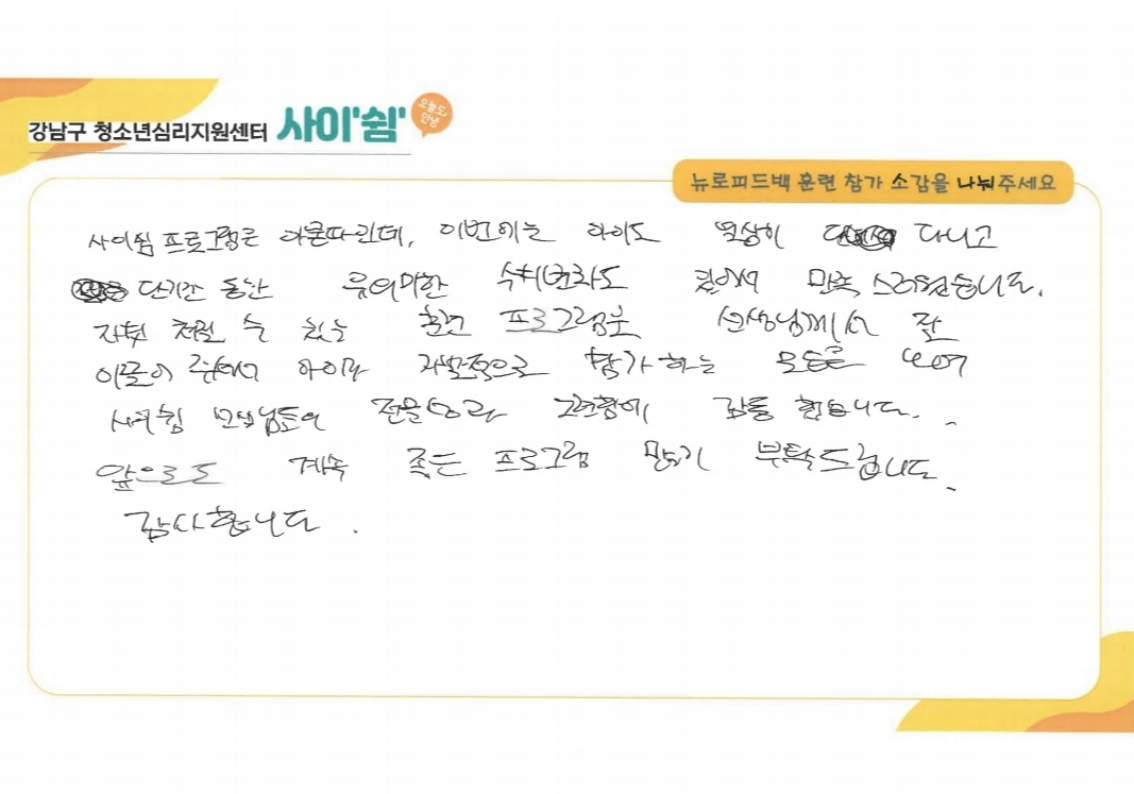 강남구 청소년심리지원센터 사이'쉼'
오늘도
안녕
뉴로피드백 훈련 참가 소감을 나눠주세요
사이쉼 프로그램은 이번에는 아이도 열심히 다니고
단기간 동안 유의미한 수치변화도 있어서 만족스러웠습니다.
자칫 지칠 수 있는 훈련 프로그램을 선생님께서 잘
이끌어 주셔서 아이가 자발적으로 참가하는 모습을 보며
사이쉼 선생님들의 전문성과 감동 했습니다.
앞으로도 계속 좋은 프로그램 부탁드립니다.
감사합니다.